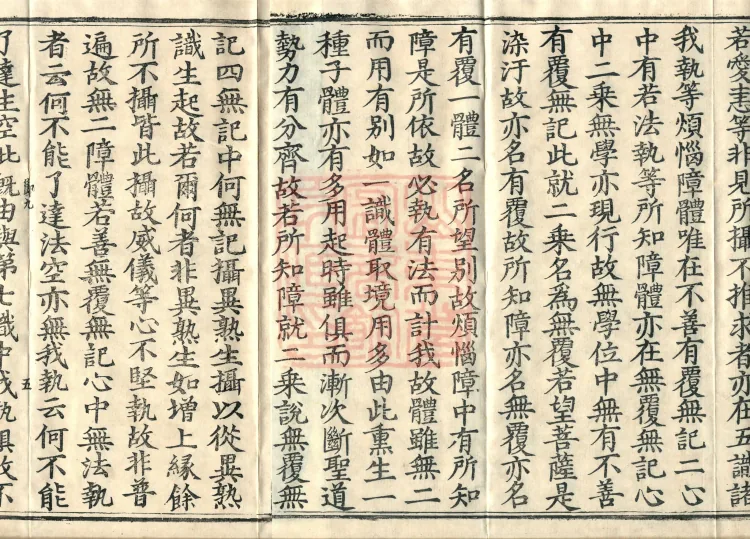 若愛恚等非見所攝不推求者亦在五識諸
我執等煩惱障體唯在不善有覆無記二心
中有若法執等所知障體亦在無覆無記心
中二乘無學亦現行故無學位中無有不善
有覆無記此就二乘名爲無覆若望菩薩是
染汙故亦名有覆故所知障亦名無覆亦名
有覆一體二名所望別故煩惱障中有所知
障是所依故必執有法而計我故體雖無二
而用有別如一識體取境用多由此熏生一
種子體亦有多用起時雖俱而漸次斷聖道
勢力有分齊故若所知障就二乘說無覆無
記四無記中何無記攝異熟生攝以從異熟
識生起故若爾何者非異熟生如增上緣餘
所不攝皆此攝故威儀等心不堅執故非普
遍故無二障體若善無覆無記心中無法執
者云何不能了達法空亦無我執云何不能
五
了達生空此既由與第七識中我執俱故不